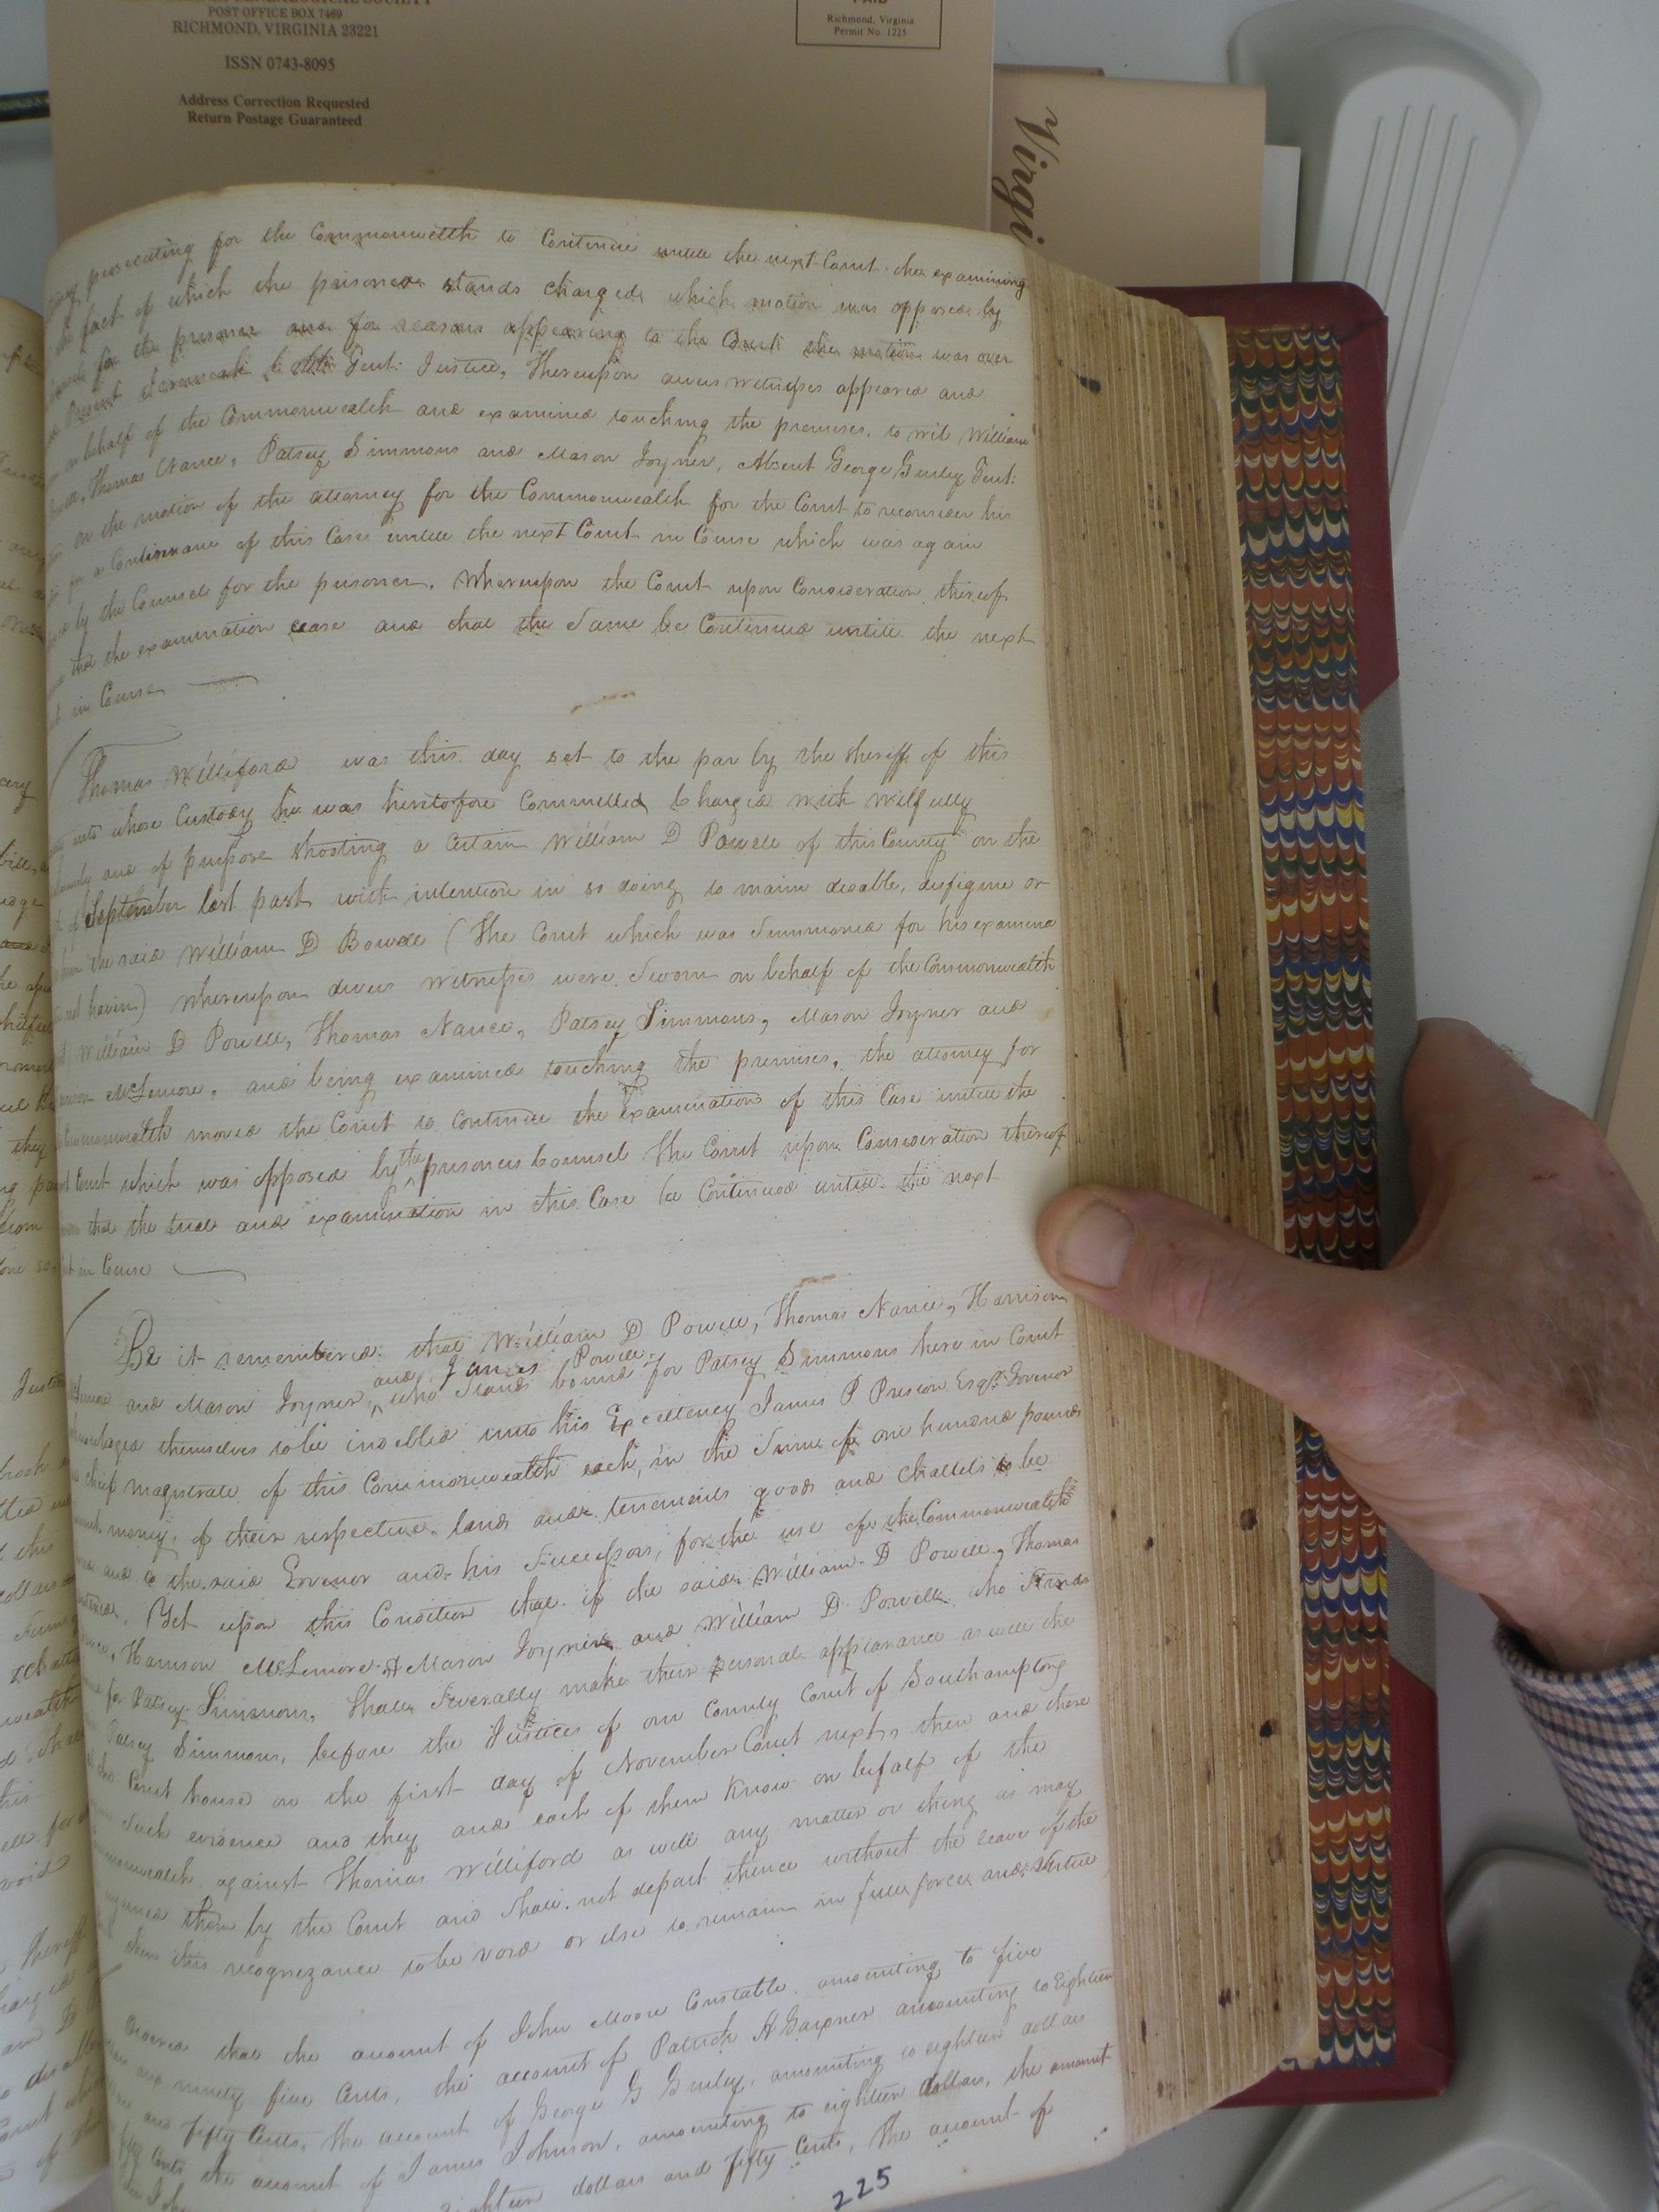 POST OFFICE BOX 7469
RICHMOND, VIRGINIA 23221
ISSN 0743-8095
Address Correction Requested
Return Postage Guaranteed
PAID
Richmond, Virginia
Permit No. 1225
Virgi
prosecuting for the Commonwealth to Continue untill the next Court the examining
the fact of which the prisoner stands charged which motion was opposed by
for the prisoner and for reasons appearing to the Court the motion was over
Present Gent: Justice, Thereupon divers witnesses appeared and
on behalf of the Commonwealth and examined touching the premises, to wit William
Thomas Nance, Patsey Simmons and Mason Joyner, Absent George Gurley Gent:
on the motion of the attorney for the Commonwealth for the Court to reconsider his
for a Continuance of this Case untill the next Court in Course which was again
by the Counsel for the prisoner. Whereupon the Court upon Consideration thereof
that the examination cease and that the Same be Continued untill the next
in Course
Thomas Williford was this day set to the par by the Sheriff of this
into whose Custody he was heretofore Committed Charged with wilfully
and of purpose Shooting a Certain William D Powell of this County on the
September last past with intention in so doing to maim disable, disfigure or
the said William D Bowell (The Court which was Summoned for his examina
not haven) Whereupon divers witnesses were Sworn on behalf of the Commonwealth
William D Powell, Thomas Nance, Patsey Simmons, Mason Joyner and
McLemore, and being examined touching the premises, the attorney for
Commonwealth moved the Court to Continue the Examination of this Case untill the
Court which was opposed by the prisoners Counsel The Court upon Consideration thereof
that the trial and examination in this Case be Continued untill the next
in Course
Be it remembered that William D Powell, Thomas Nance, Harrison
and James Powell
and Mason Joyner, who Stands bound for Patsey Simmons here in Court
themselves to be indebted unto his Excellency James P Preston Esqr. Govenor
chief magistrate of this Commonwealth each, in the Sum of one hundred pounds
money, of their respective lands and tenements goods and chattels to be
and to the said Govenor and his Successors, for the use of the Commonwealth
Yet upon this Condition that if the said William D Powell, Thomas
Harrison McLemore & Mason Joyner and William D Powell who Stands
for Patsey Simmons, Shall Severally make their personal appearance as well the
Patsey Simmons, before the Justices of our County Court of Southampton
Court house on the first day of November Court next, then and there
Such evidence and they and each of them Know on behalf of the
against Thomas Williford as well any matter or thing as may
them by the Court and Shall not depart thence without the leave of the
then this recognizance to be void or else to remain in full force and Virtue
Ordered that the account of John Moore Constable, amounting to five
and ninety five Cents, the account of Patrick H Gardner amounting to Eighteen
and fifty Cents, The account of George G Gurley, amounting to eighteen dollars
fifty Cents, the account of James Johnson, amounting to eighteen dollars, the amount
Eighteen dollars and fifty Cents, The account of
225